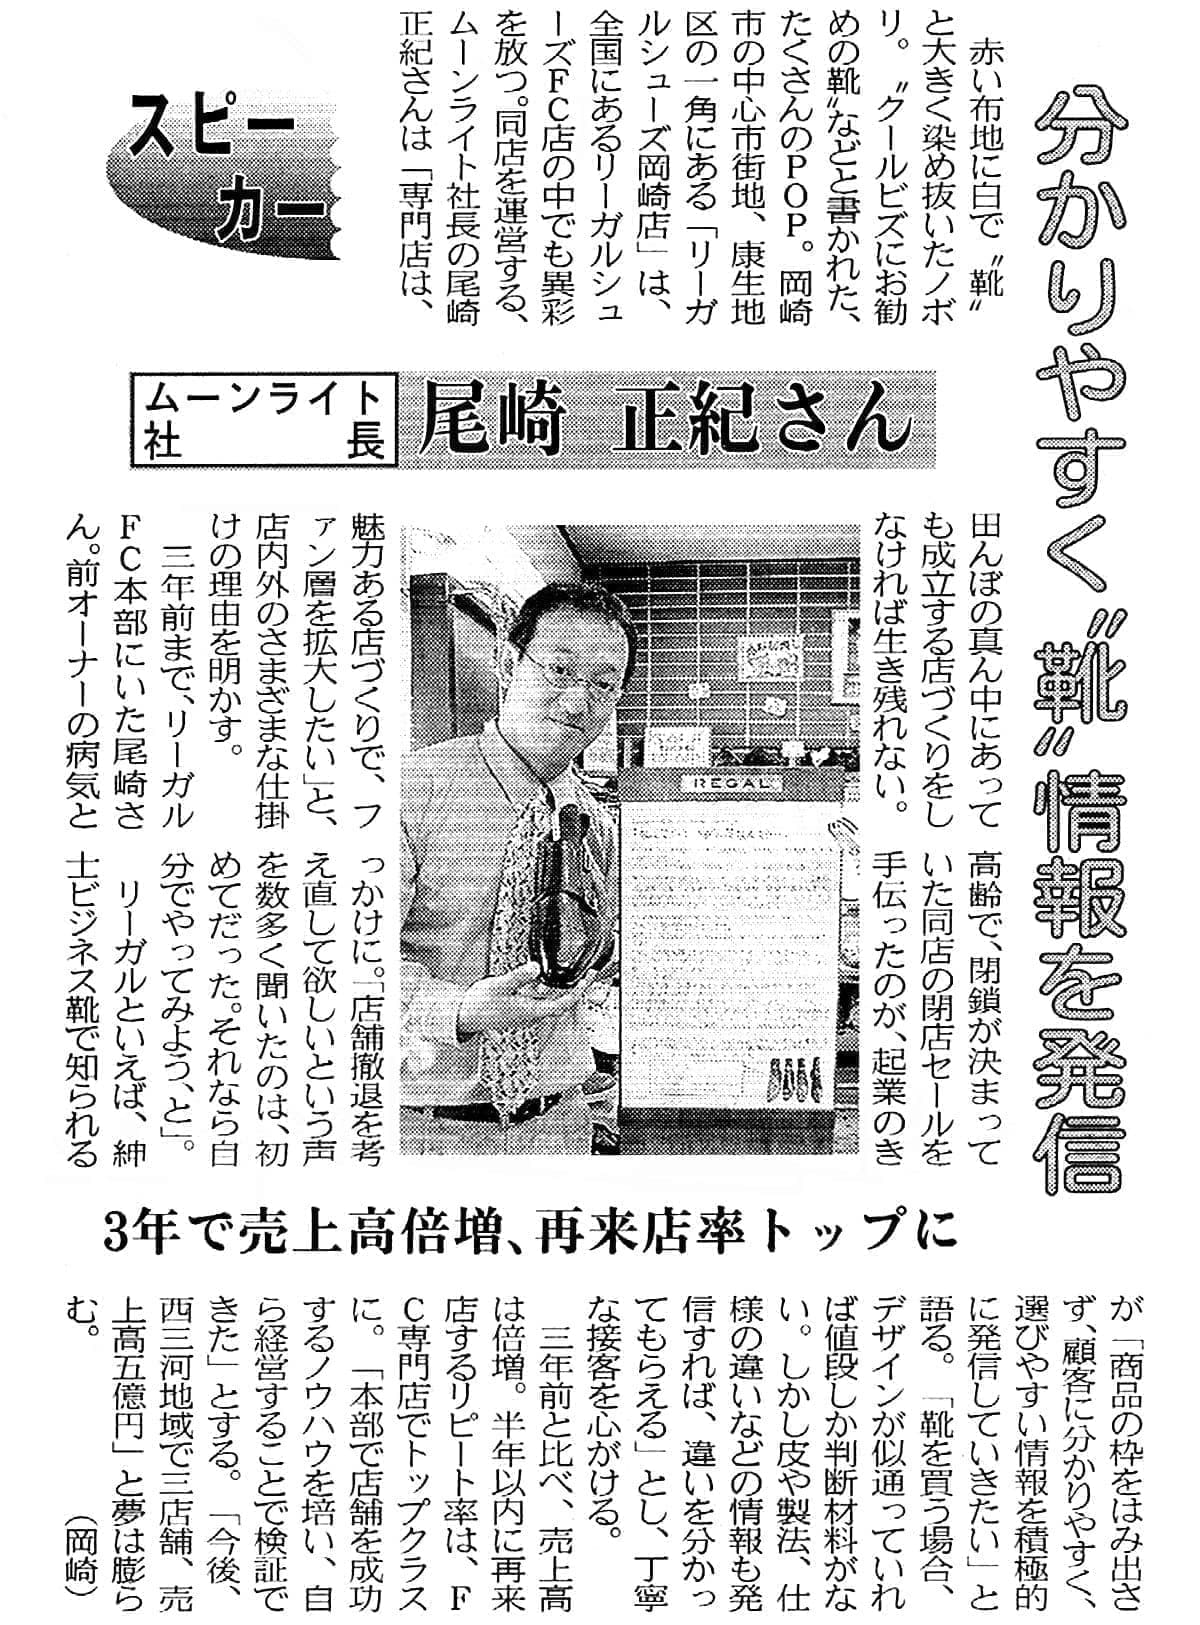 分かりやすく〝靴〟情報を発信
スピー
カー
赤い布地に白で〝靴〟
と大きく染め抜いたノボ
リ。〝クールビズにお勧
めの靴〟などと書かれた、
たくさんのPOP。岡崎
市の中心市街地、康生地
区の一角にある「リーガ
ルシューズ岡崎店」は、
全国にあるリーガルシュ
ーズFC店の中でも異彩
を放つ。同店を運営する、
ムーンライト社長の尾崎
正紀さんは「専門店は、
ムーンライト
社長
尾崎 正紀さん
田んぼの真ん中にあって
も成立する店づくりをし
なければ生き残れない。
REGAL
魅力ある店づくりで、フ
ァン層を拡大したい」と、
店内外のさまざまな仕掛
けの理由を明かす。
三年前まで、リーガル
FC本部にいた尾崎さ
ん。前オーナーの病気と
高齢で、閉鎖が決まって
いた同店の閉店セールを
手伝ったのが、起業のき
っかけに。「店舗撤退を考
え直して欲しいという声
を数多く聞いたのは、初
めてだった。それなら自
分でやってみよう、と」。
リーガルといえば、紳
士ビジネス靴で知られる
3年で売上高倍増、再来店率トップに
が「商品の枠をはみ出さ
ず、顧客に分かりやすく、
選びやすい情報を積極的
に発信していきたい」と
語る。「靴を買う場合、
デザインが似通っていれ
ば値段しか判断材料がな
い。しかし皮や製法、仕
様の違いなどの情報も発
信すれば、違いを分かっ
てもらえる」とし、丁寧
な接客を心がける。
三年前と比べ、売上高
は倍増。半年以内に再来
店するリピート率は、F
C専門店でトップクラス
に。「本部で店舗を成功
するノウハウを培い、自
ら経営することで検証で
きた」とする。「今後、
西三河地域で三店舗、売
上高五億円」と夢は膨ら
む。
（岡崎）